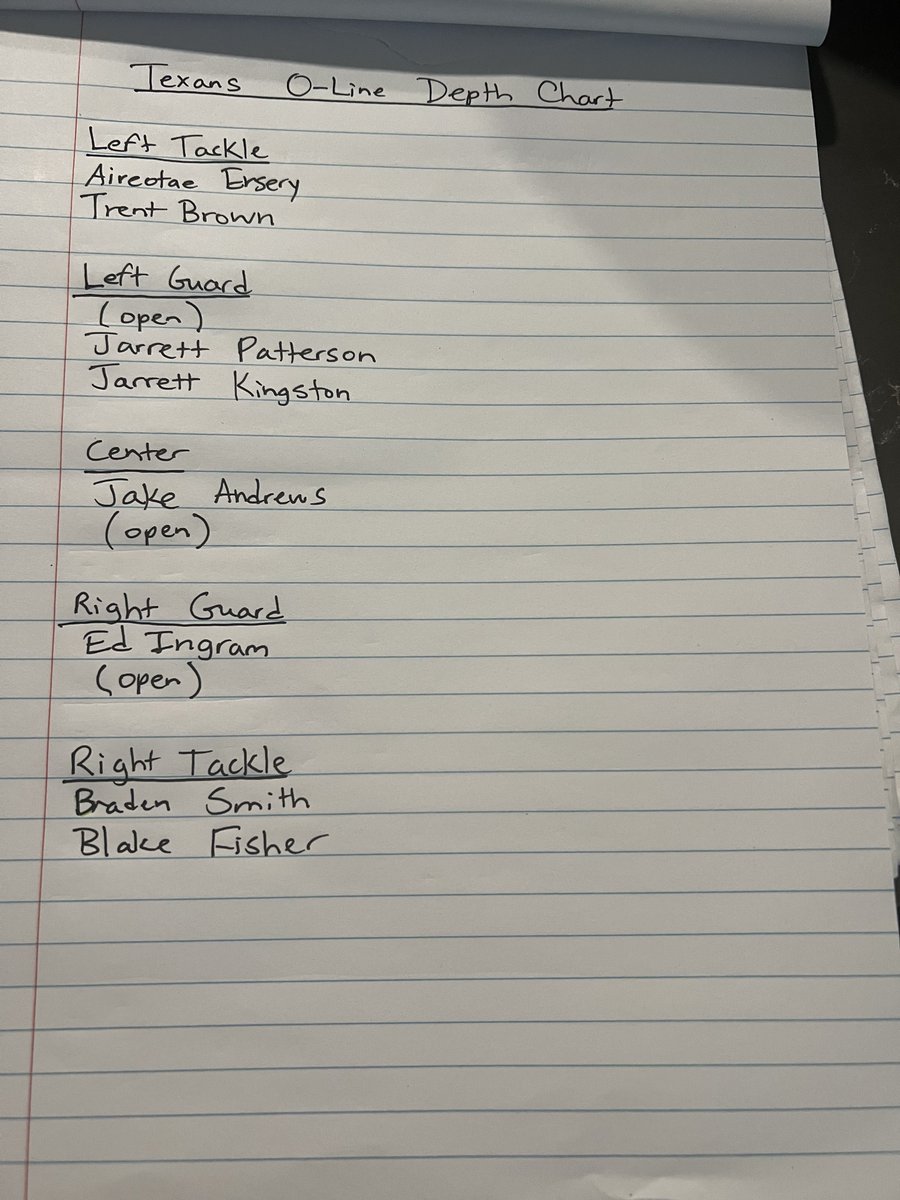 Texans O-Line Depth Chart
Left Tackle
Aireotae Ersery
Trent Brown
Left Guard
(open)
Jarrett Patterson
Jarrett Kingston
Center
Jake Andrews
(open)
Right Guard
Ed Ingram
(open)
Right Tackle
Braden Smith
Blake Fisher